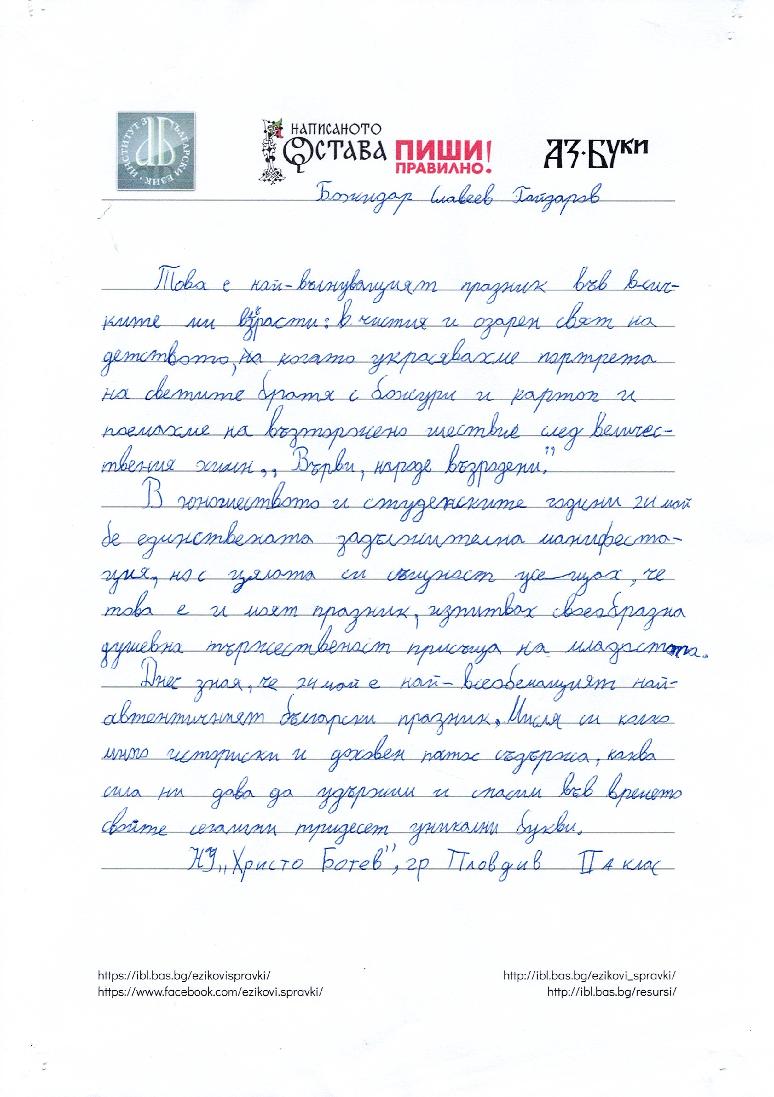 ИНСТИТУТ ЗА БЪЛГАРСКИ ЕЗИК
НАПИСАНОТО
ОСТАВА ПИШИ!
ПРАВИЛНО!
АЗ·БУКИ
Божидар Славеев Гайдаров
Това е най-вълнуващият празник във всич-
ките ми възрасти: в чистия и озарен свят на
детството, на когато украсявахме портрета
на светите братя с божури и картон и
поемахме на възторжено шествие след величес-
твения химн „ Върви, народе възродени."
В юношеството и студенските години 24 май
бе единствената задължителна манифеста-
ция, но с цялота си същност усещах, че
това е и моят празник, изпитвах своеобразна
душевна тържественост присъща на младостта.
Днес зная, че 24 май е най-всеобемащият най-
автентичният български празник. Мисля си колко
много историски и духовен патос съдържа, каква
сила ни дава да удържим и спасим във времето
свойте сегашни тридесет уникални букви.
НУ „Христо Ботев", гр Пловдив II А клас
https://ibl.bas.bg/ezikovispravki/ http://ibl.bas.bg/ezikovi_spravki/
https://www.facebook.com/ezikovi.spravki/ http://ibl.bas.bg/resursi/